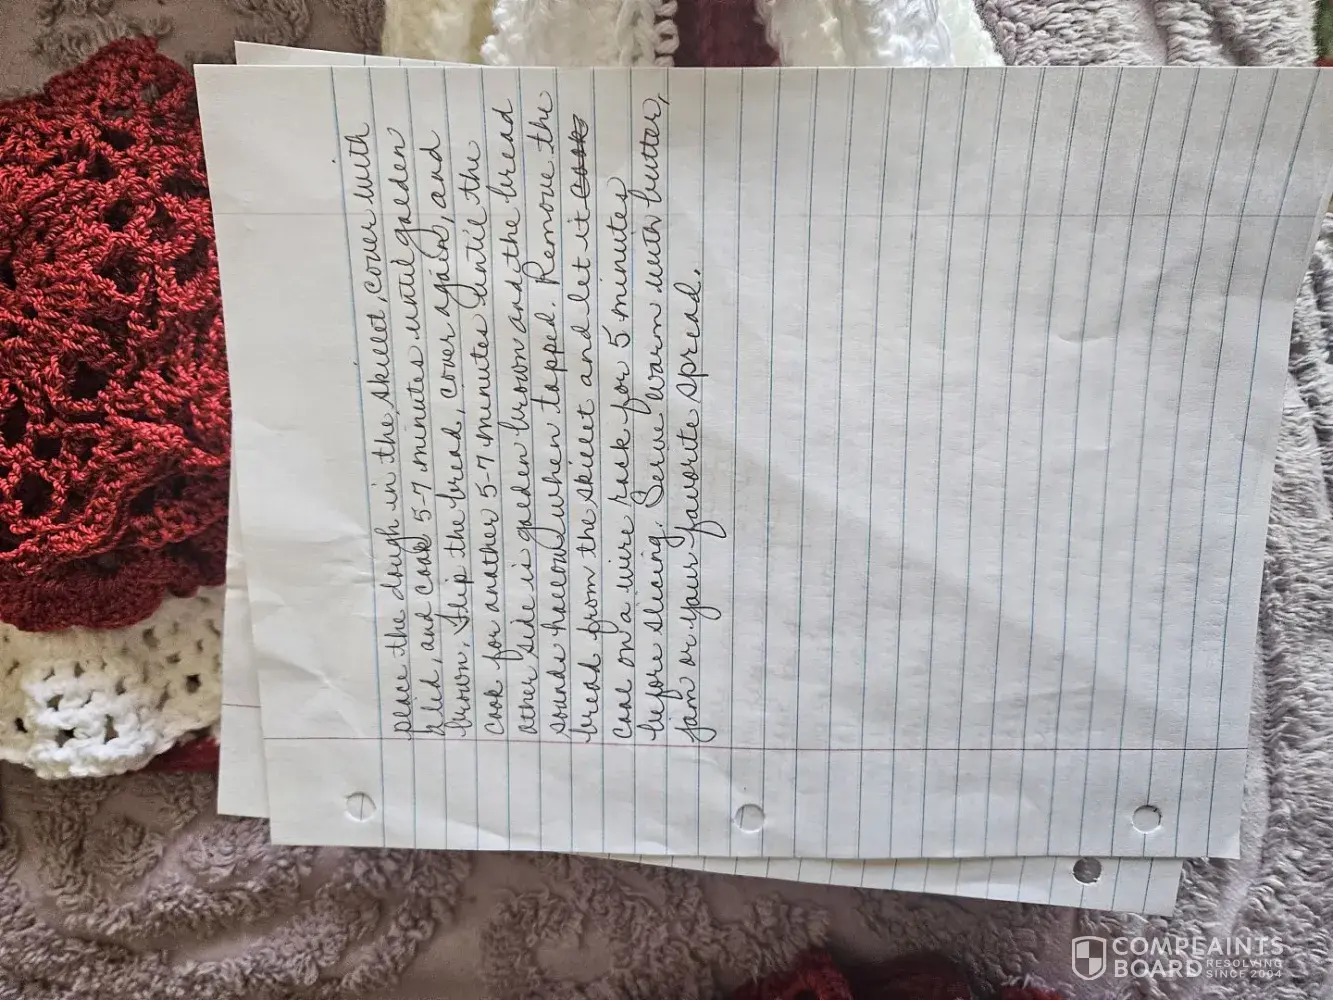 place the dough in the skillet, cover with
a lid, and cook 5-7 minutes until golden
brown. Flip the bread, cover again, and
cook for another 5-7 minutes until the
other side is golden brown and the bread
sounds hollow when tapped. Remove the
bread from the skillet and let it cook
cool on a wire rack for 5 minutes
before slicing. Serve warm with butter,
jam or your favorite spread.
COMPLAINTS
BOARD RESOLVING
SINCE 2004